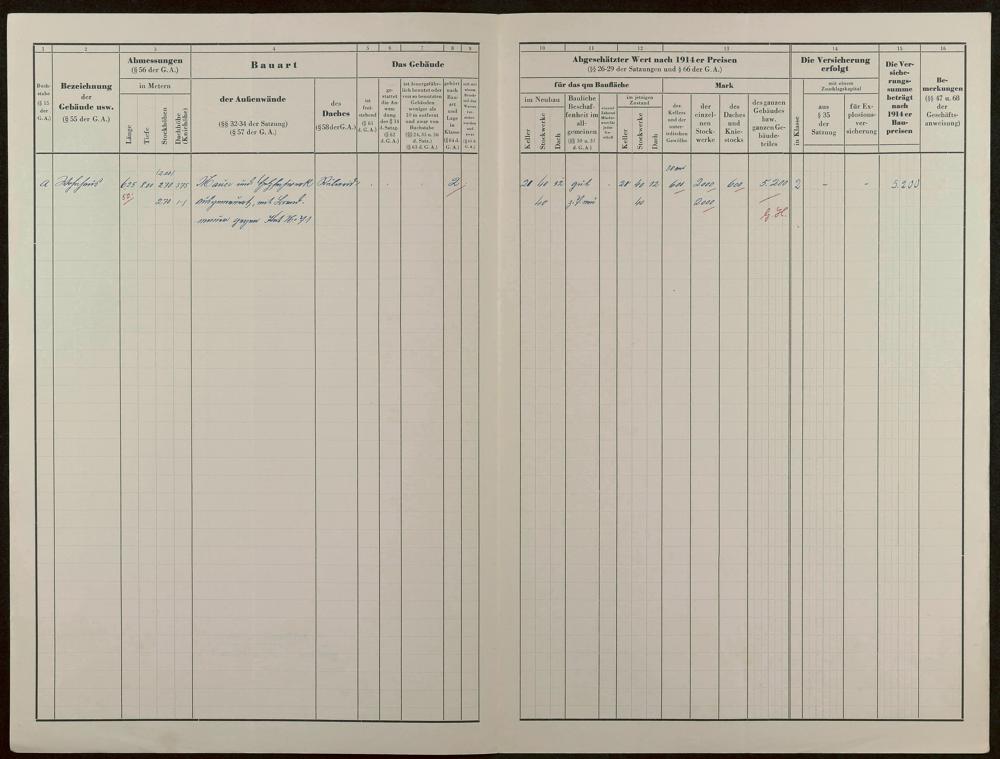 1 2 3 4 5 6 7 8 9
Buch-
stabe
(§ 55
der
G.A.)
Bezeichnung
der
Gebäude usw.
(§ 55 der G.A.)
Abmessungen
(§ 56 der G.A.)
in Metern
Länge
Tiefe
Stockhöhen
Dachhöhe
(Kniehöhe)
Bauart
der Außenwände
(§§ 32-34 der Satzung)
(§ 57 der G.A.)
des
Daches
(§58 der G.A.)
Das Gebäude
ist
frei-
stehend
(§ 61
d. G.A.)
ge-
stattet
die An-
wen-
dung
des § 34
d. Satzg.
(§ 62
d. G.A.)
gehört
nach
Bau-
art
und
Lage
in
Klasse
(§ 64 d.
G.A.)
(2.00)
A Wohnhaus 6.25 8.00 2.70 3.75 Mauer und Holzfachwerk
2.70
ausgemauert, mit Brand-
2
10 11 12 13 14 15 16
Abgeschätzter Wert nach 1914 er Preisen
(§§ 26-29 der Satzungen und § 66 der G.A.)
für das qm Baufläche
im Neubau
Keller
Stockwerke
Dach
Bauliche
Beschaf-
fenheit im
all-
gemeinen
im jetzigen
Zustand
Keller
Stockwerke
Dach
Mark
des
Kellers
und der
unter-
irdischen
Gewölbe
der
einzel-
nen
Stock-
werke
des
Daches
und
Knie-
stocks
des ganzen
Gebäudes
bzw.
ganzen Ge-
bäude-
teiles
Die Versicherung
erfolgt
in Klasse
mit einem
Zuschlagskapital
aus
§ 35
der
Satzung
für Ex-
plosions-
ver-
sicherung
Die Ver-
siche-
rungs-
summe
beträgt
nach
1914 er
Bau-
preisen
Be-
merkungen
(§§ 47 u. 68
der
Geschäfts-
anweisung)
20 40 12 gut 20 40 12 600 2000 600 5.200 2 - - 5.200
40 40 2000